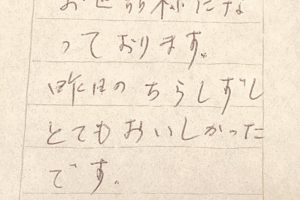 お世話様にな
っております。
昨日のちらしずし
とてもおいしかった
です。